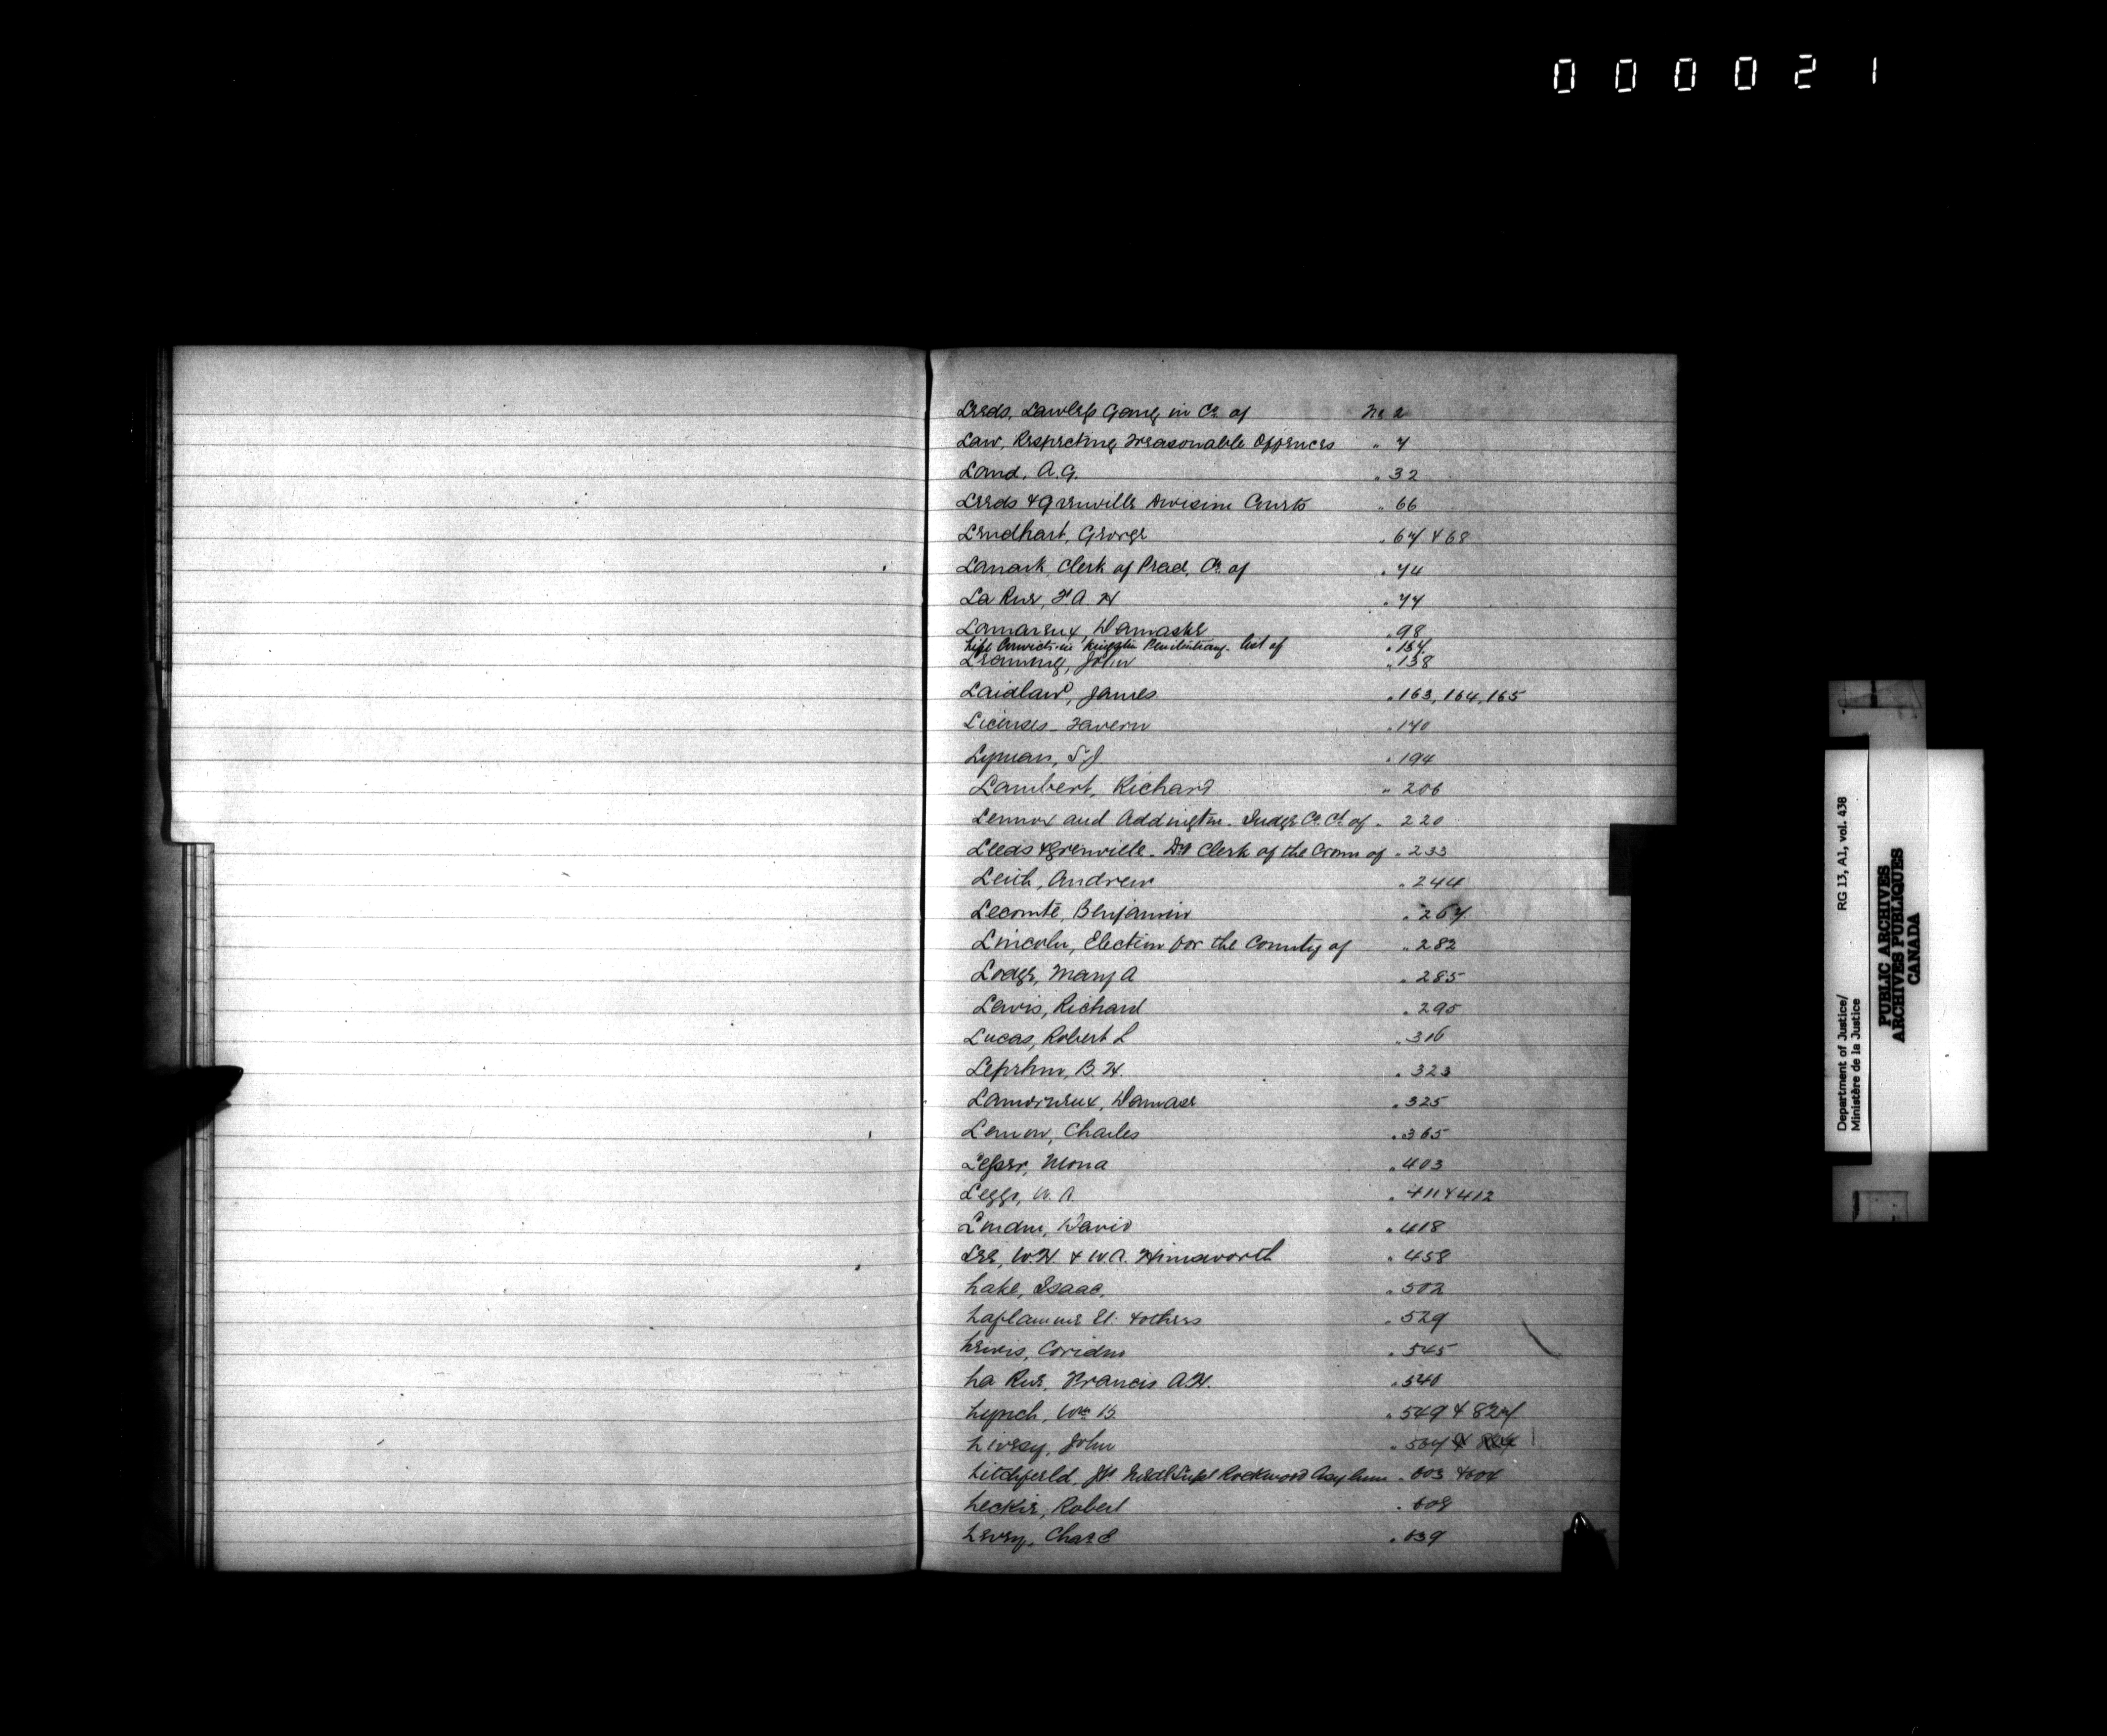 000021
Leeds, Lawless Gang in Co. of No 2
Law, Respecting Treasonable Offences " 7
Land, A.G. " 32
Leeds & Grenville Division Courts " 66
Lendhart, George " 67 & 68
Lanark, Clerk of Peace, Co. of " 74
La Rue, F.A.H " 77
Lamareux, Damaske " 98
Life Convicts in Kingston Penitentiary - list of " 134
Leaming, John " 138
Laidlaw, James " 163, 164, 165
Licenses - Tavern " 170
Lyman, S.J. " 194
Lambert, Richard " 206
Lennox and Addington - Judge Co. Ct. of " 220
Leeds & Grenville - Dy Clerk of the Crown of " 233
Leith, Andrew " 244
Lecomte, Benjamin " 267
Lincoln, Election for the County of " 282
Lodge, Mary A " 285
Lewis, Richard " 295
Lucas, Robert L " 316
Leprhon, B.H. " 323
Lamoureux, Damase " 325
Lemon, Charles " 365
Lesser, Mona " 403
Leggo, W.A. " 411 & 412
David " 418
Lee, W.H. & W.A. Himsworth " 458
Lake, Isaac, " 502
Laflamme & others " 529
Lewis, Coridon " 545
La Rue, Francis A.H. " 540
Lynch, Wm B. " 549 & 827
Livesy, John " 567
Litchfield, J.P. Medl Supt Rockwood Asylum " 603 & 604
Leckie, Robert " 608
Levey, Chas E " 639
Department of Justice/
Ministère de la Justice
RG 13, A1, vol. 438
PUBLIC ARCHIVES
ARCHIVES PUBLIQUES
CANADA